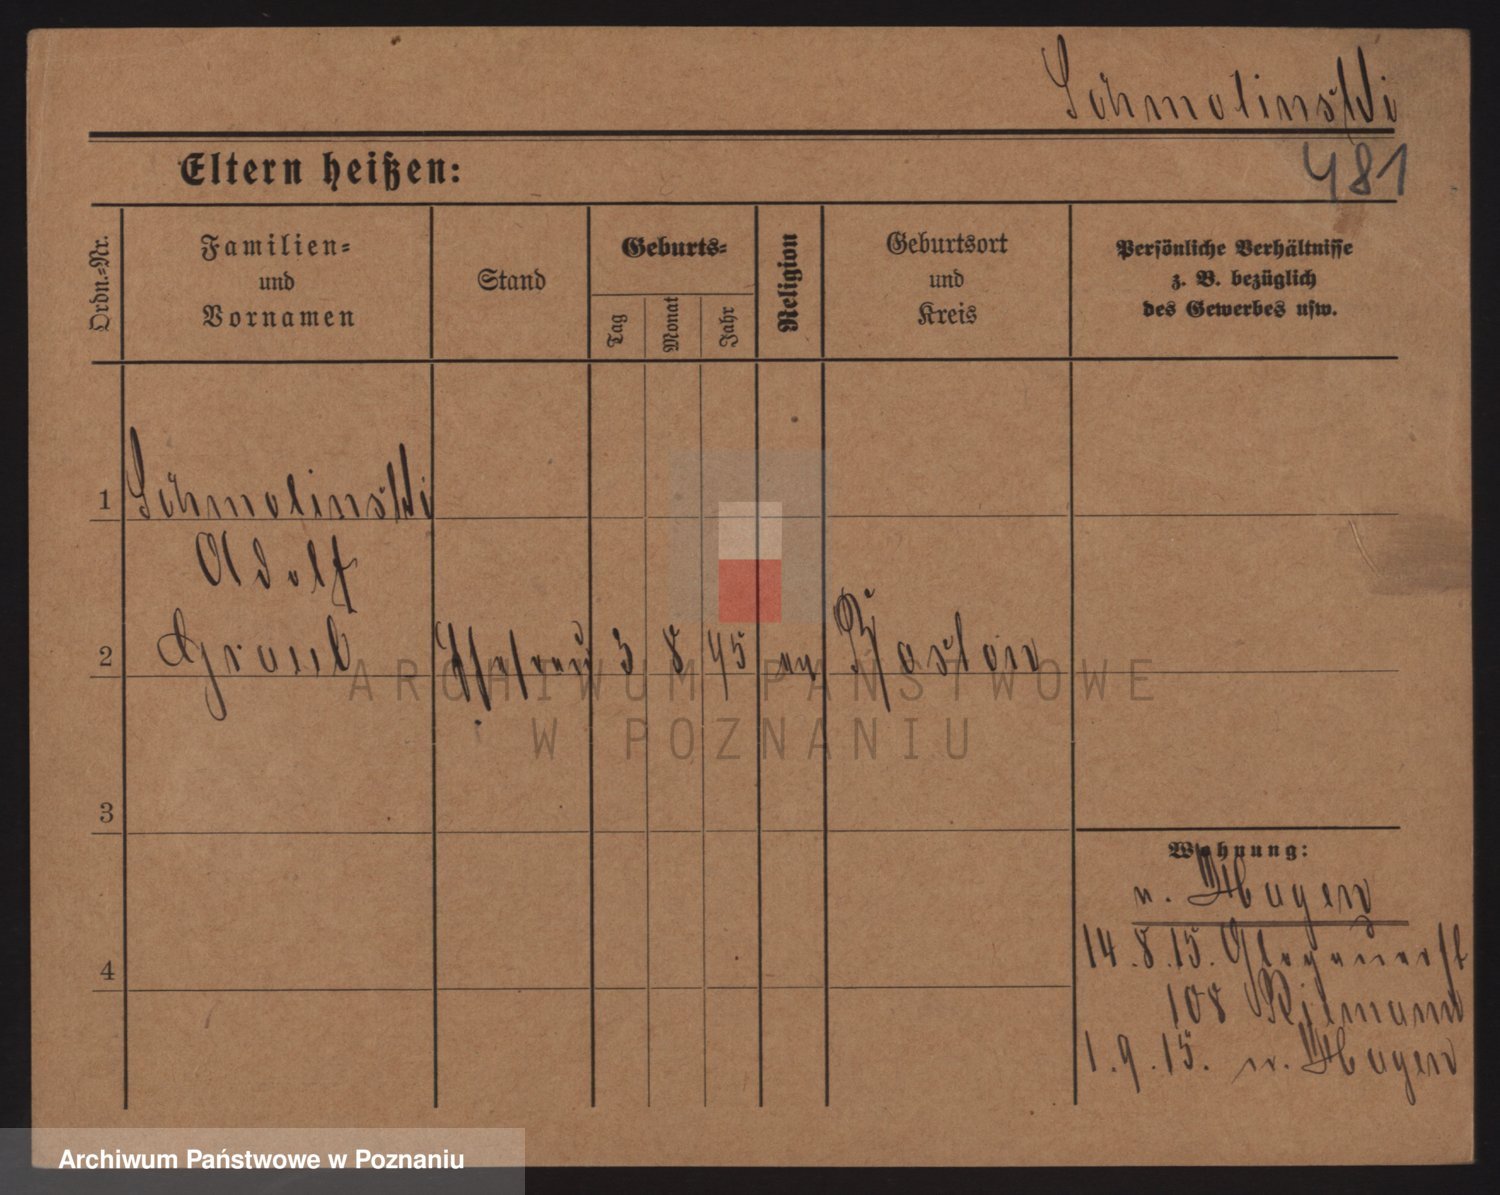 Schmolinski
481
Eltern heißen:
Ordn.=Nr.
Familien=
und
Vornamen
Stand
Geburts=
Tag
Monat
Jahr
Religion
Geburtsort
und
Kreis
Persönliche Verhältnisse
z. B. bezüglich
des Gewerbes usw.
1 Schmolinski
Adolf
2 3 8 45 ev
3
4
Wohnung:
n. Hagen
14.8.15.
108
1.9.15. n. Hagen
ARCHIWUM PAŃSTWOWE
W POZNANIU
Archiwum Państwowe w Poznaniu